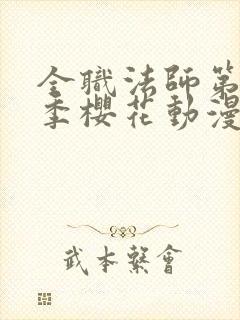 全職法師第
季櫻花動漫
武本繫會